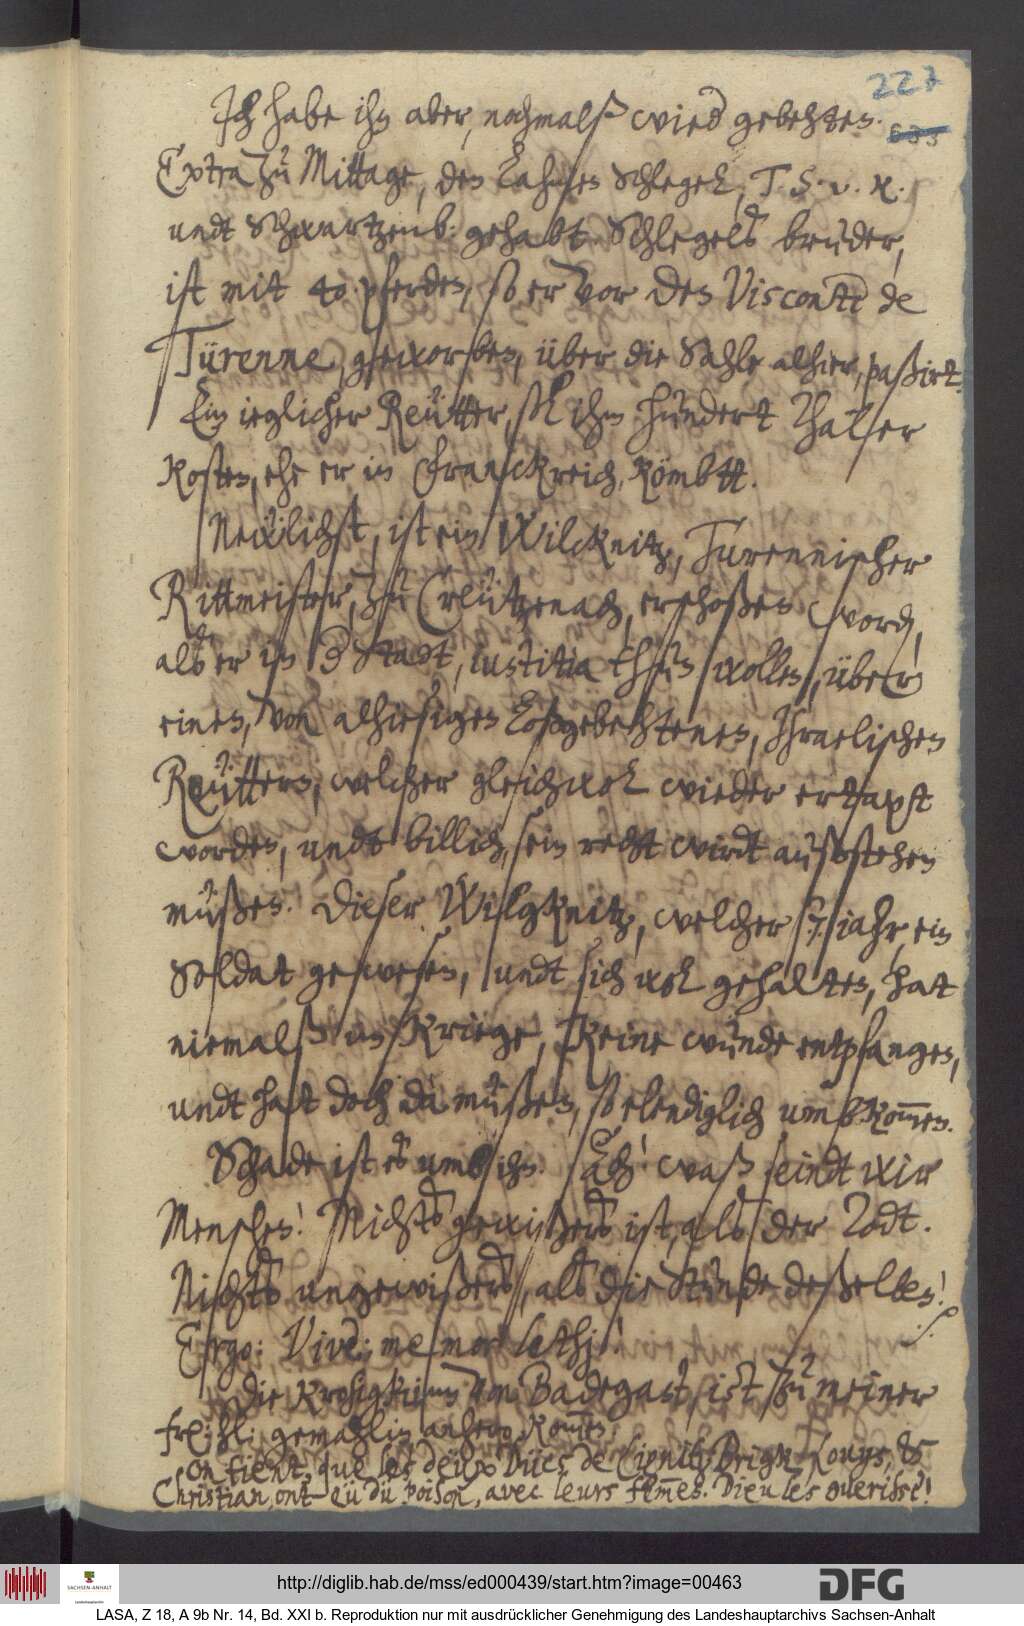 227
635
Ich habe ihn aber, nochmalß wied gebehten.
Extra zu Mittage, den Lahmen Schlegel, T. S. v. R.
undt Schwartzenb: gehabt. Schlegelß bruder,
ist mit 40 pferden, so er vor den Viscontè de
Türenne, geworben, über die Sahle alhier, paßirt.
Ein ieglicher Reütter, soll ihm hundert Thaler
kosten, ehe er in Franckreich, kömbtt.
Newlichst, ist ein Wilcknitz, Turennischer
Rittmeister, zu Creützenach, erschoßen word,
alß er in d Stadt, iustitia thun wollen, über
eines, von alhiesigen Loßgebehtenen, Israelischen
Reütters, welcher gleichwol wieder ertapft
worden, undt billich, sein recht wirdt außstehen
müßen. Dieser Wilgknitz, welcher 7 iahr, ein
Soldat gewesen, undt sich wol gehalten, hat
niemalß im Kriege, keine wunde entpfangen,
undt hatt doch da müßen, so elendiglich umbkommen.
Schade ist es umb ihn. Ach! waß seindt wir
Menschen! Nichts gewißers ist, alß der Todt.
Nichts ungewißers, alß die Stunde deßelben! ./.
Ergo: Vive; memor lethj!
Die Krosigkinn von Badegast, ist zu meiner
frei: hl: gemahlin, anhero kommen.
On tient, que les deüx Dücs de Lignitz Brigk, Louys, &
Christian, ont eü dü poison, avec leurs femes. Dieu les guerisse!
http://diglib.hab.de/mss/ed000439/start.htm?image=00463
SACHSEN-ANHALT
DFG
LASA, Z 18, A 9b Nr. 14, Bd. XXI b. Reproduktion nur mit ausdrücklicher Genehmigung des Landeshauptarchivs Sachsen-Anhalt